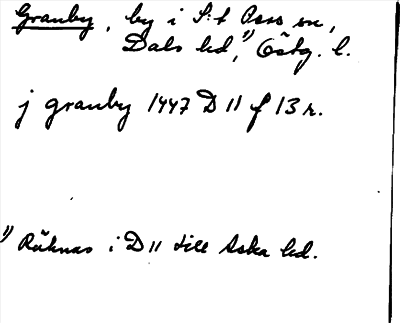 Granby, by i S:t Pers sn,
Dals hd,¹⁾ Östg. l.
j granby 1447 D 11 f 13 r.
¹⁾ Räknas i D 11 till Aska hd.